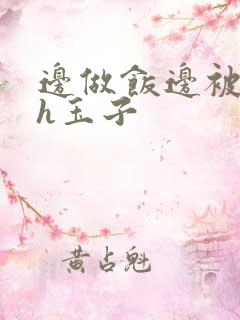 邊做飯邊被
h玉子
黃占魁